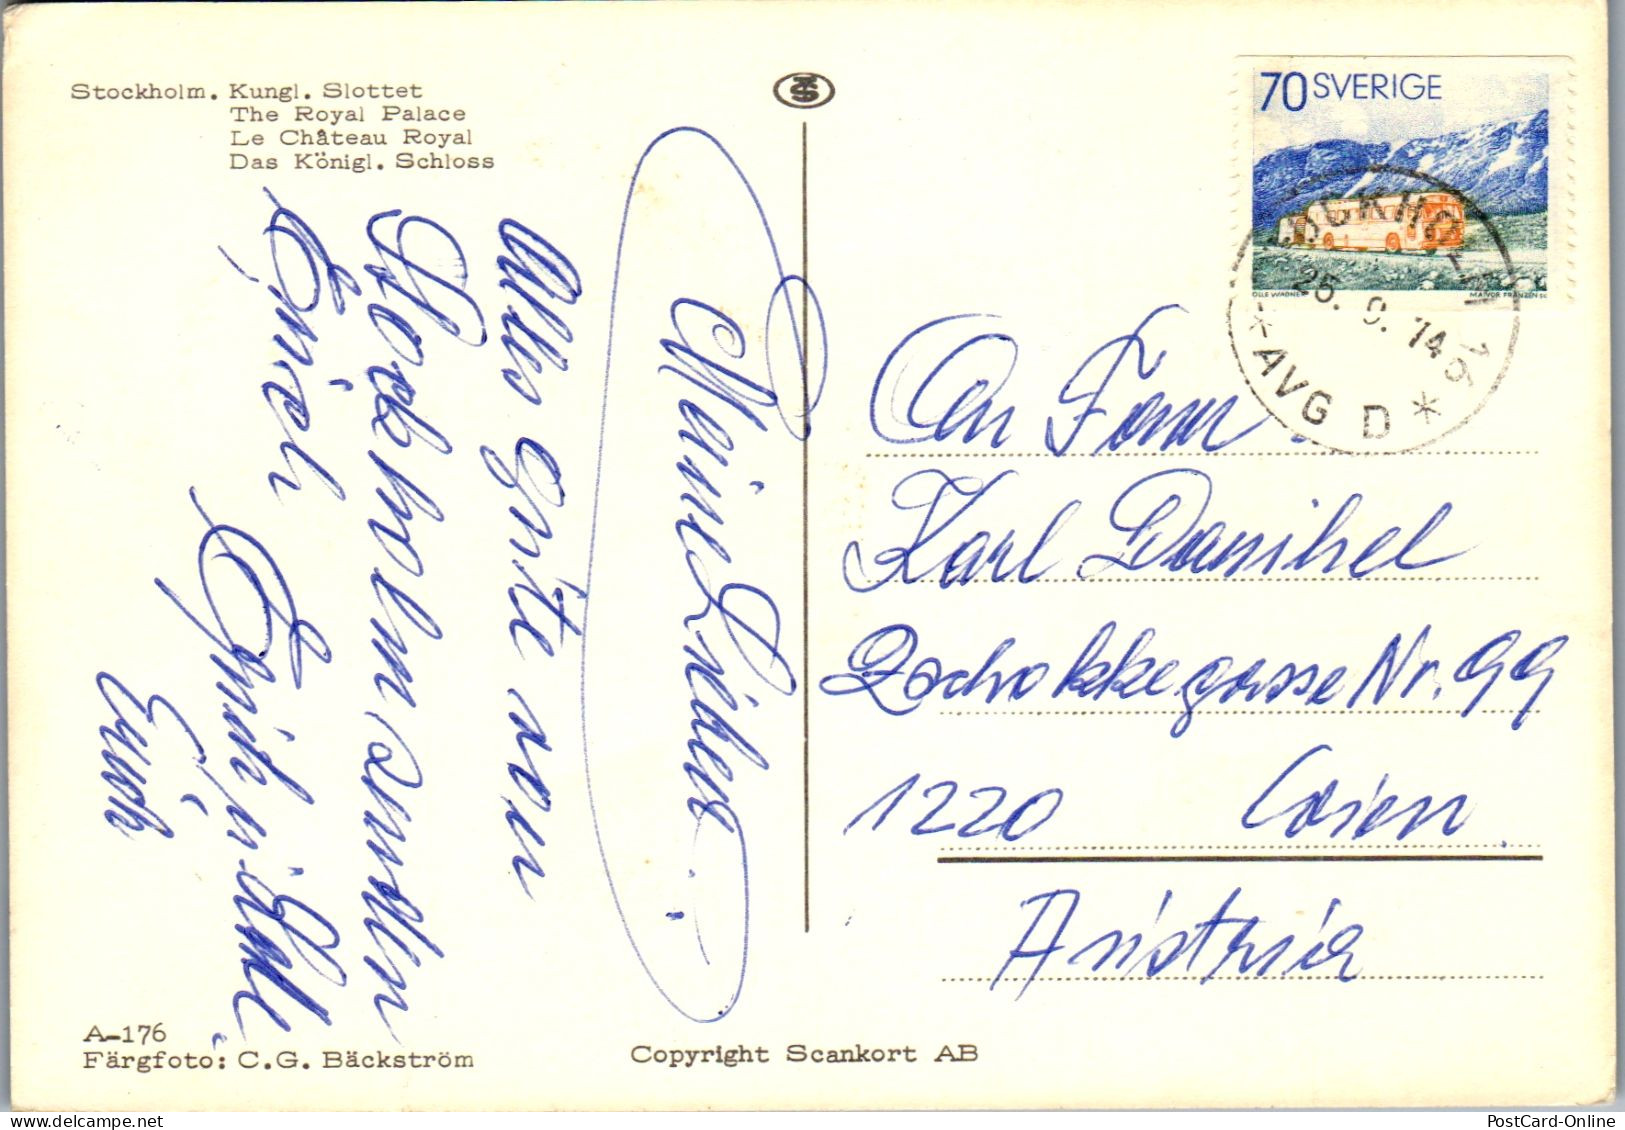 Stockholm. Kungl. Slottet
The Royal Palace
Le Château Royal
Das Königl. Schloss
70 SVERIGE
OLLE WAGNER
MAJVOR FRANZEN SC
STOCKHOLM 16
25. 9. 74
* AVG D *
Meine Lieben
Alles gute von
Stockholm senden
Euch
Erich
An Fam
Karl Danihel
Zschokkegasse Nr. 99
1220 Wien
Austria
A-176
Färgfoto: C.G. Bäckström
Copyright Scankort AB
PostCard-Online